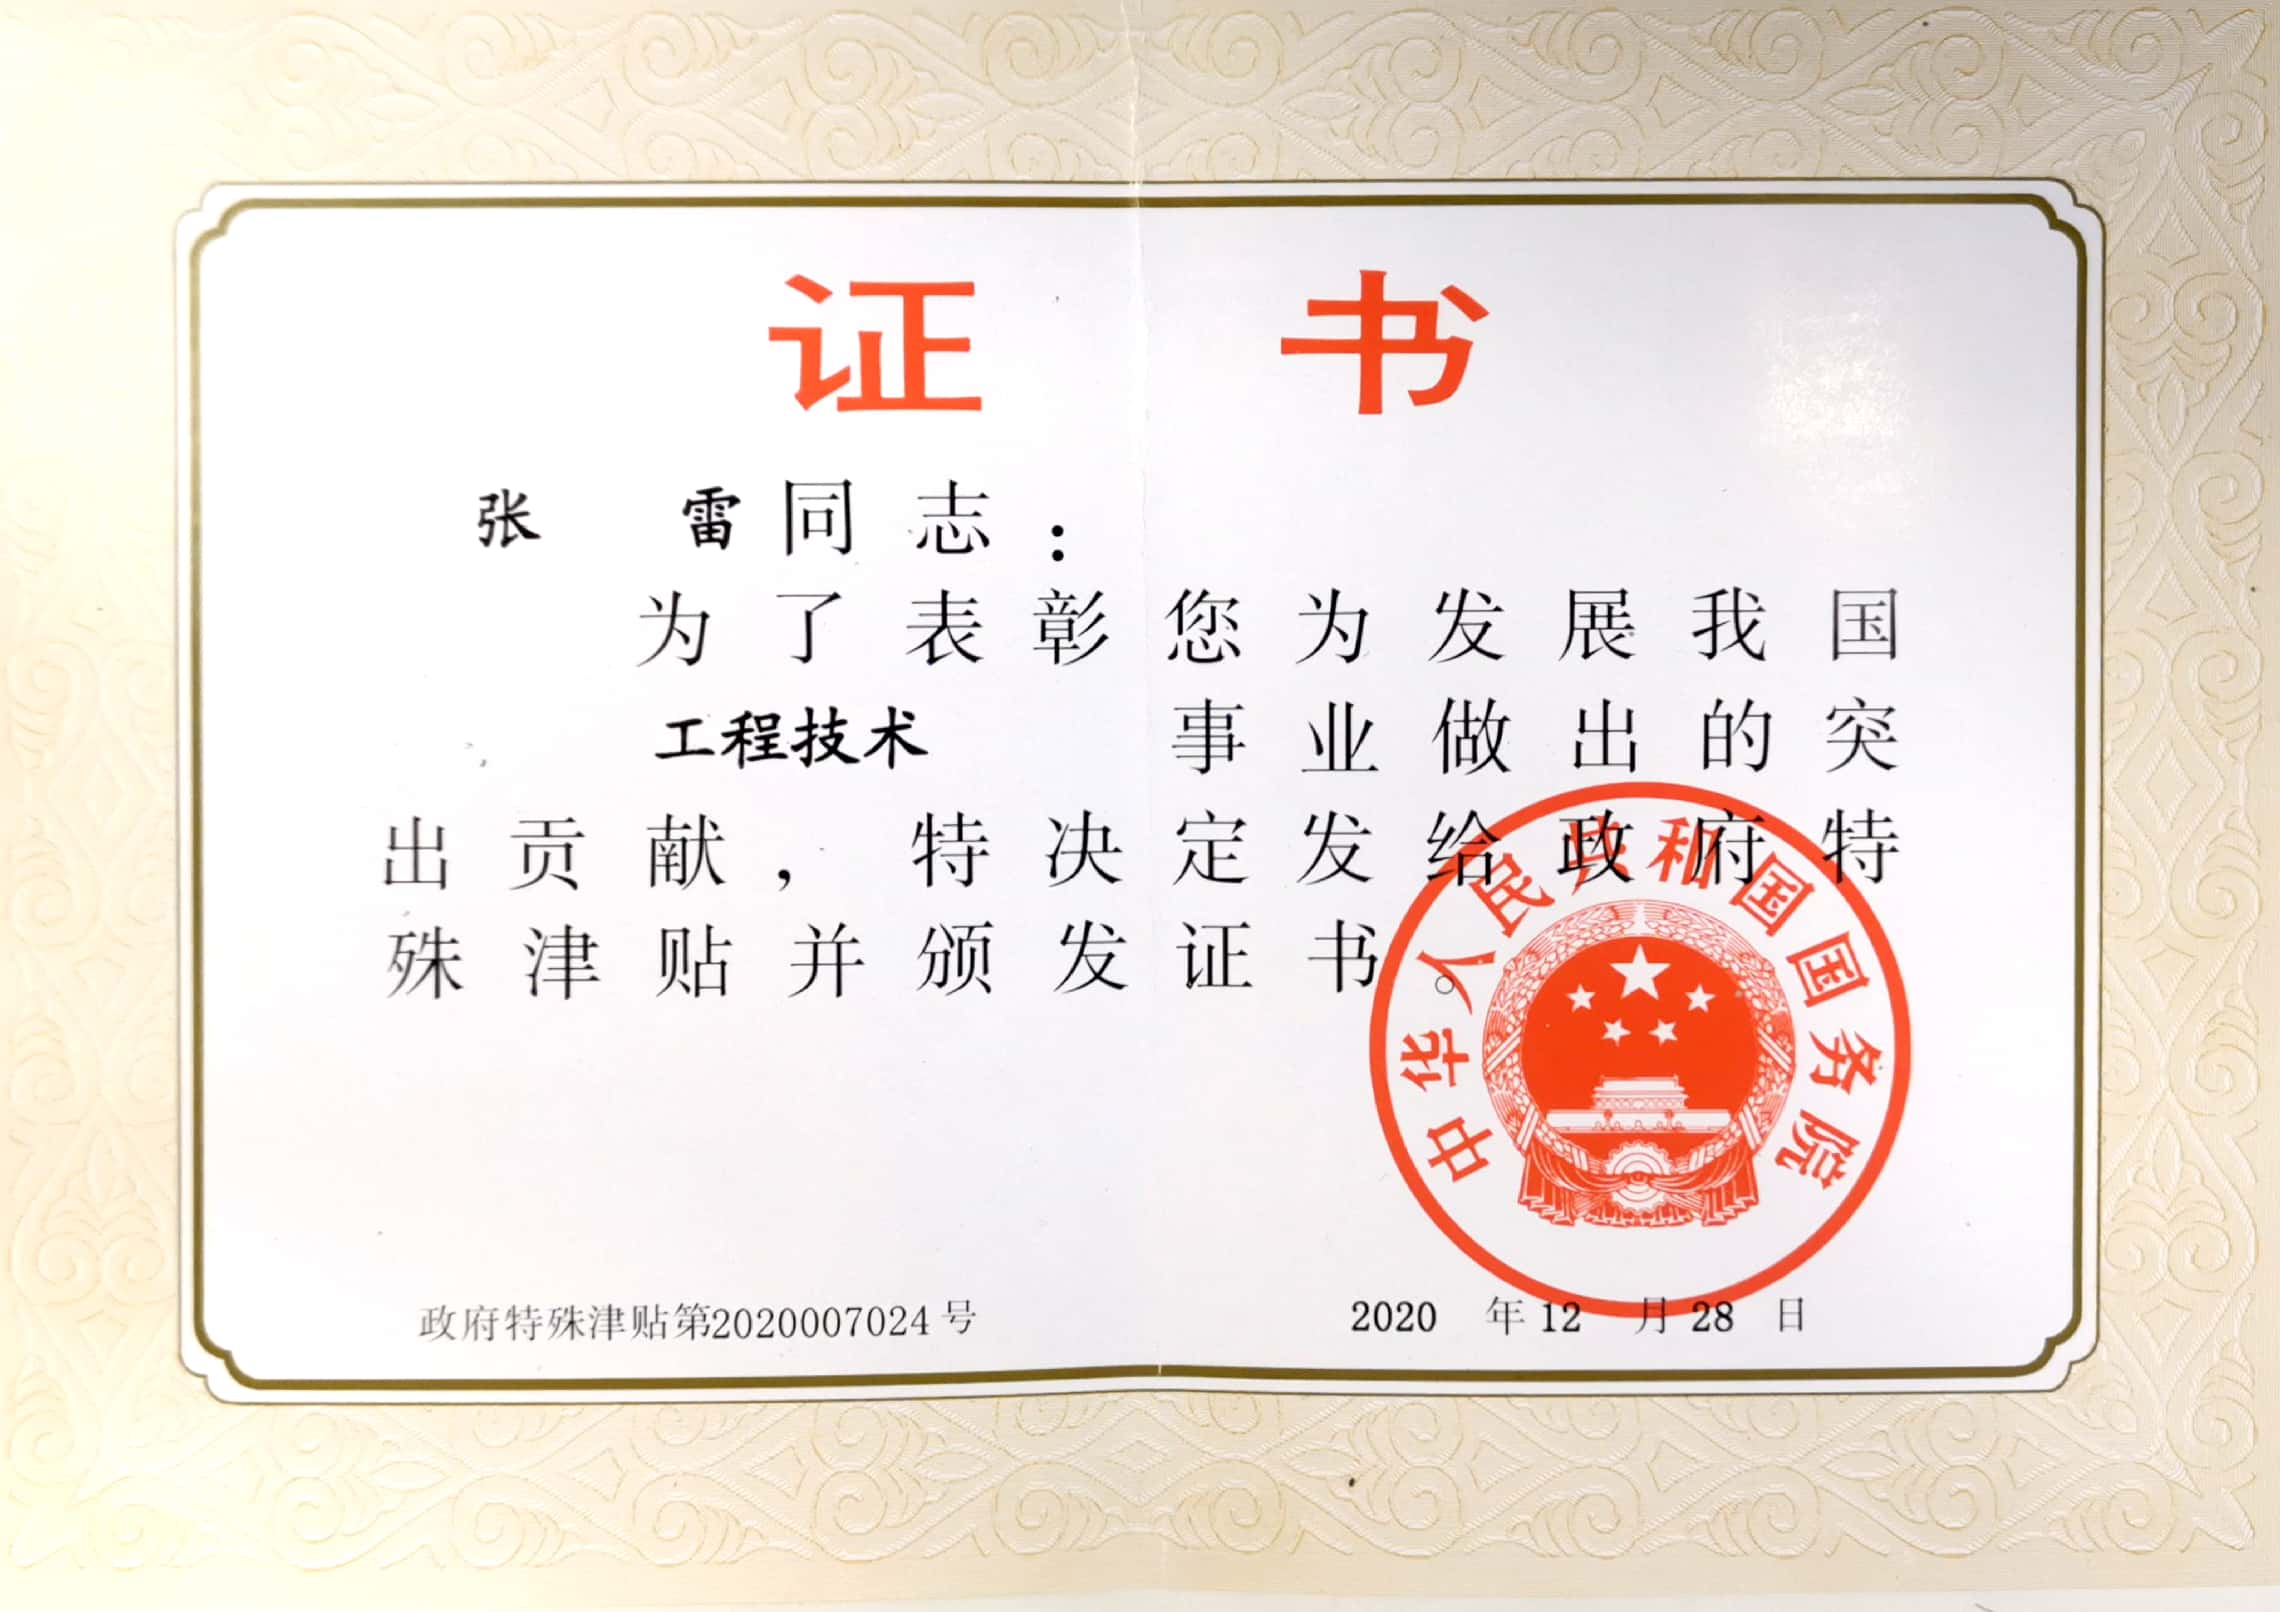 证书
张雷同志：
为了表彰您为发展我国
工程技术 事业做出的突
出贡献，特决定发给政府特
殊津贴并颁发证书。
中华人民共和国国务院
政府特殊津贴第2020007024号
2020 年 12 月 28 日